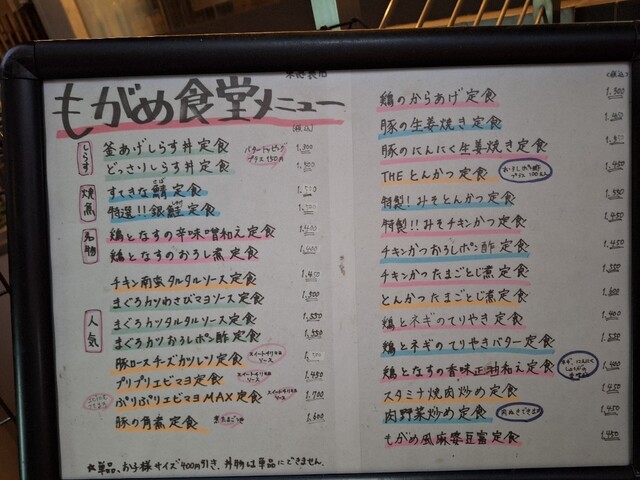 もがめ食堂メニュー
(税込)
しらす
釜あげしらす丼定食 バタートッピングプラス150円 1,300
どっさりしらす丼定食 1,800
焼魚
すてきな鯖定食
特選!!銀鮭定食
名物
鶏となすの辛味噌和え定食 1,400
鶏となすのおろし煮定食 1,400
チキン南蛮タルタルソース定食 1,450
まぐろカツわさびマヨソース定食 1,500
人気
まぐろカツタルタルソース定食 1,550
まぐろカツおろしポン酢定食 1,550
豚ロースチーズカツレツ定食 スイートチリマヨソース
プリプリエビマヨ定食 スイートチリマヨソース 1,450
ぷりぷりエビマヨMAX定食 スイートチリマヨソース 1,700
豚の角煮定食 煮たまごつき 1,600
☆単品、お子様サイズ400円引き、丼物は単品にできません。
(税込)
鶏のからあげ定食 1,300
豚の生姜焼き定食
豚のにんにく生姜焼き定食
THEとんかつ定食 1,450
特製!みそとんかつ定食
特製!!みそチキンかつ定食 1,450
チキンかつおろしポン酢定食 1,450
チキンかつたまごとじ煮定食 1,550
とんかつたまごとじ煮定食 1,600
鶏とネギのてりやき定食 1,400
鶏とネギのてりやきバター定食 1,530
鶏となすの香味正油和え定食 1,400
スタミナ焼肉炒め定食 1,450
肉野菜炒め定食 肉ぬきできます 1,450
もがめ風麻婆豆腐定食 1,450